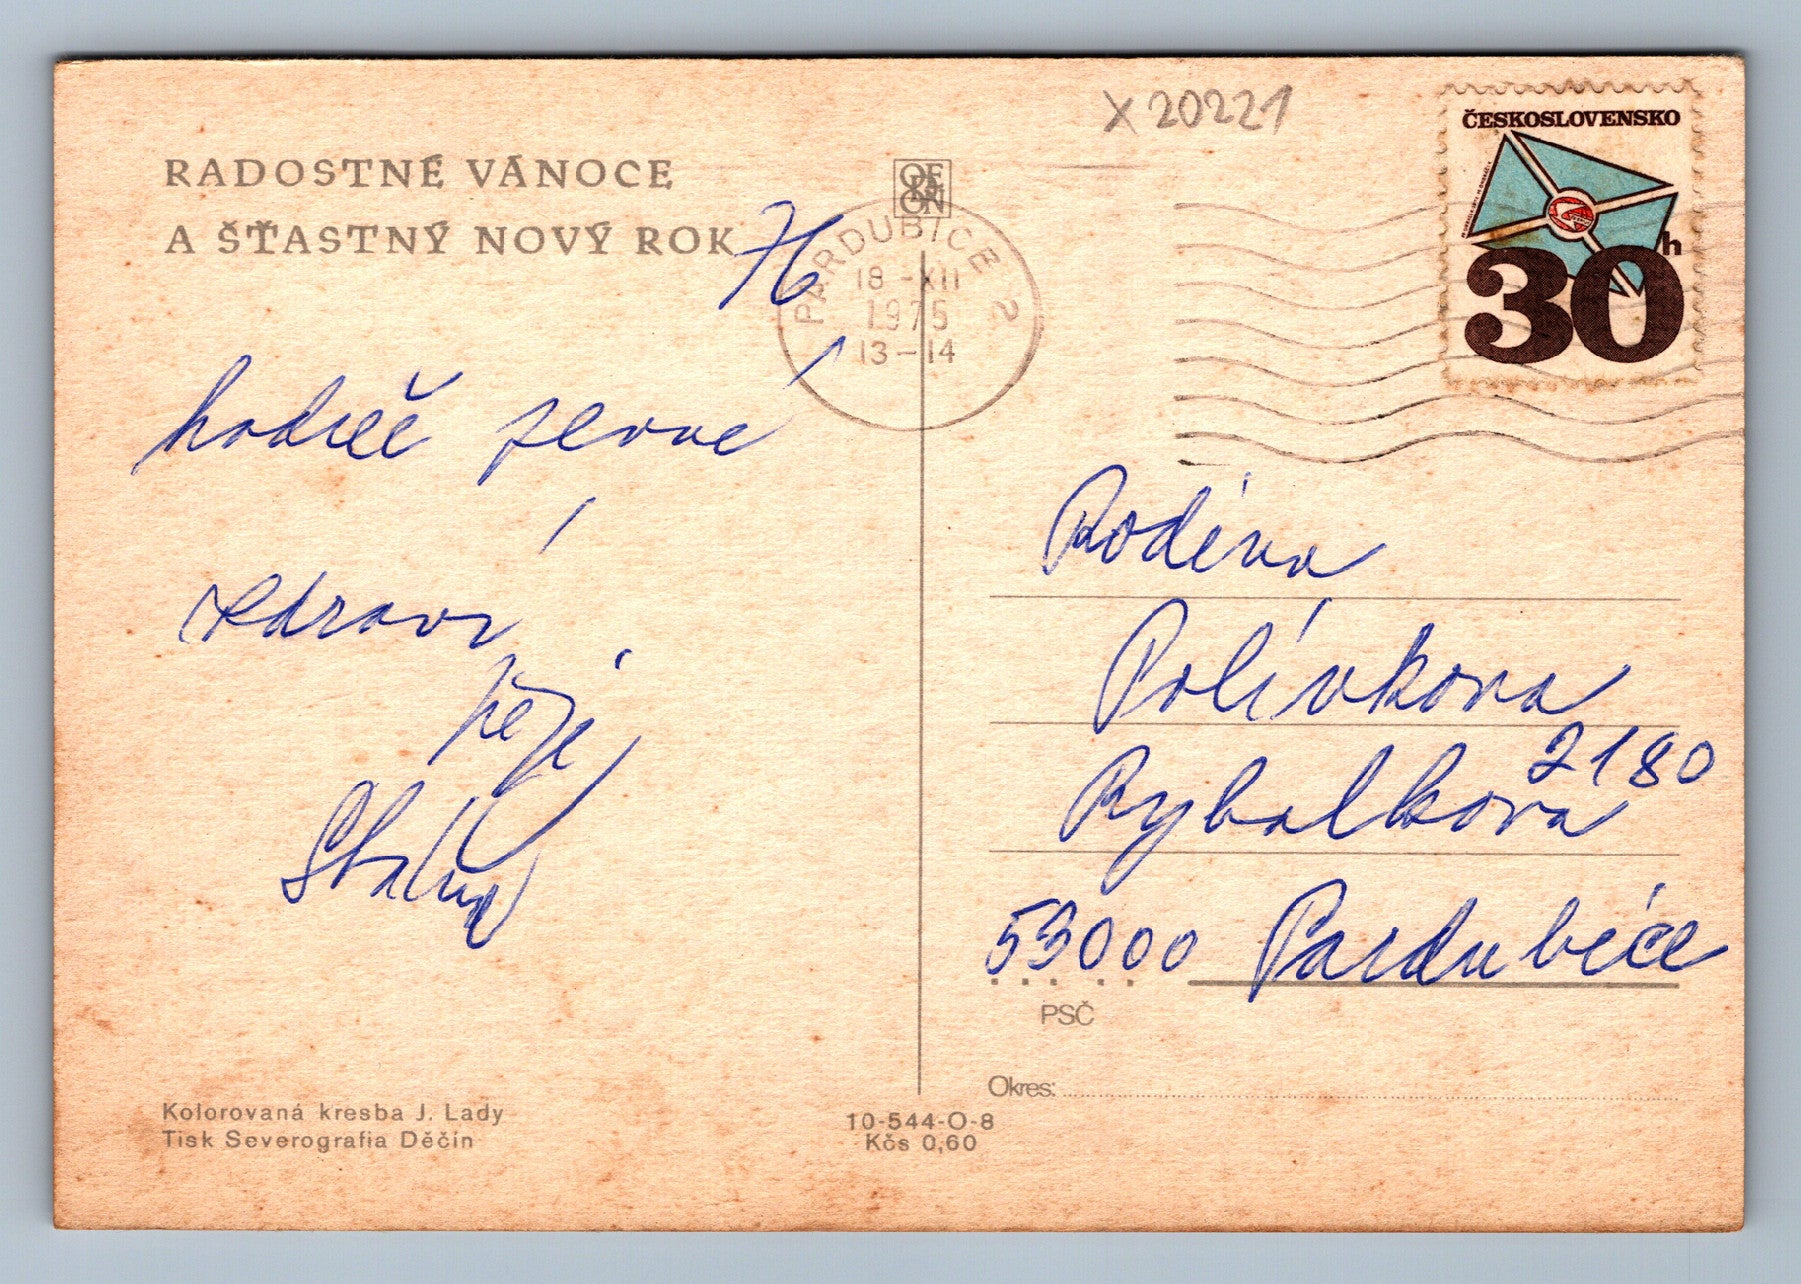 X 20221
ČESKOSLOVENSKO
30 h
RADOSTNÉ VÁNOCE
A ŠŤASTNÝ NOVÝ ROK 76
ORBIS
PARDUBICE 2
18 -XII
1975
13-14
hodně pevné
zdraví
přeje
Rodina
Polívkova
Rybalkova 2180
53000 Pardubice
PSČ
Okres:
Kolorovaná kresba J. Lady
Tisk Severografia Děčín
10-544-O-8
Kčs 0,60